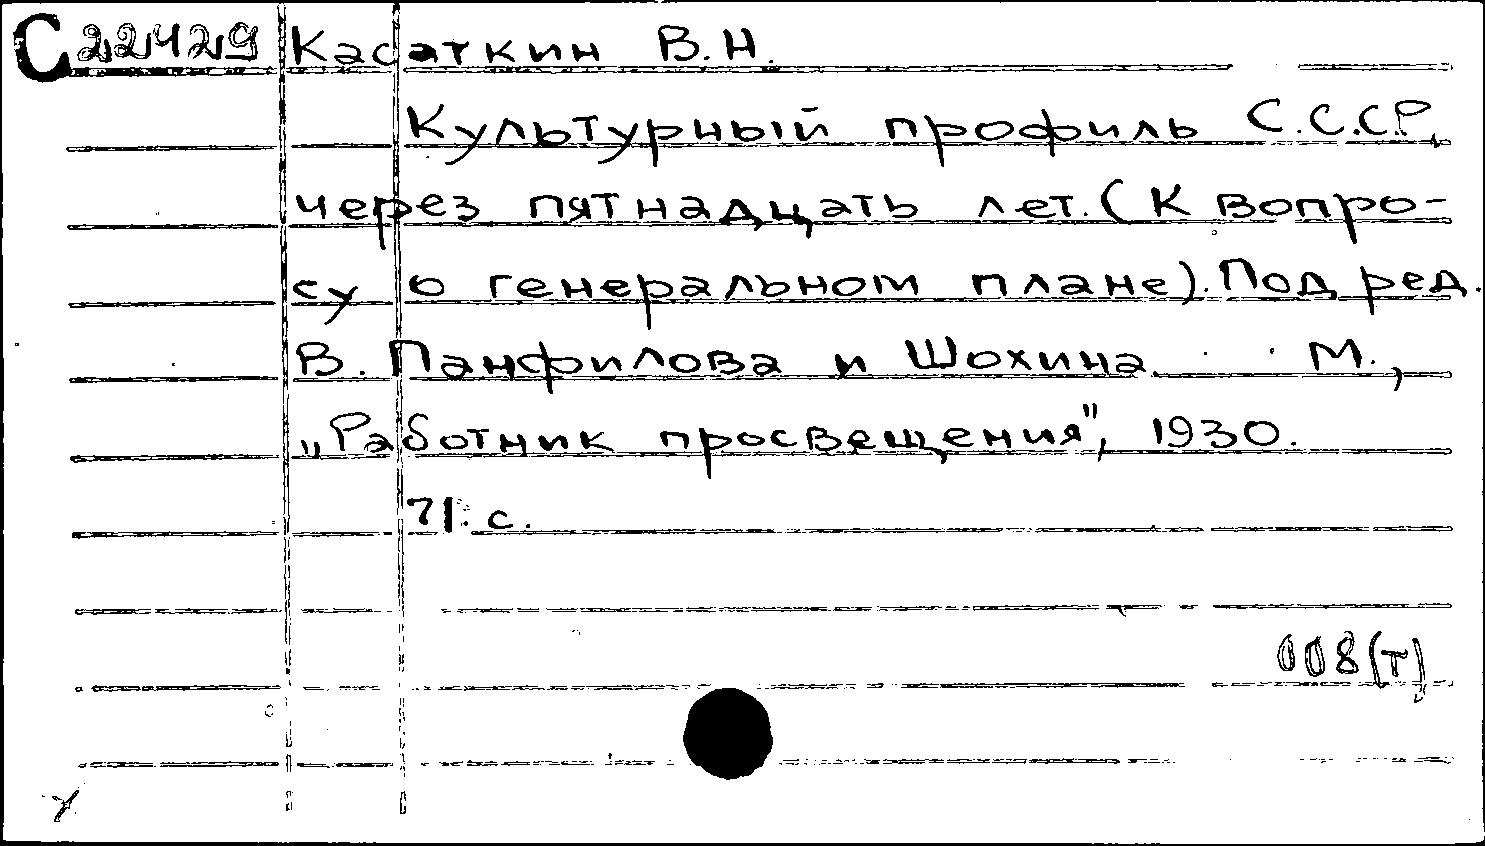 С22429 Касаткин В.Н.
Культурный профиль С.С.С.Р.
через пятнадцать лет. (К вопро-
су о генеральном плане). Под ред.
В. Панфилова и Шохина. М.,
„Работник просвещения", 1930.
71. с.
008(т)